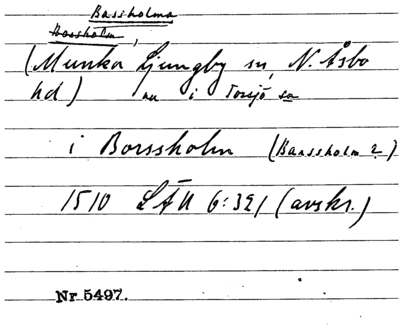 Bassholma
Bossholm,
(Munka Ljungby sn, N. Åsbo
hd) nu i Tossjö sn
i Borssholm (Banssholm?)
1510 LÄU 6:321 (avskr.)
Nr 5497.